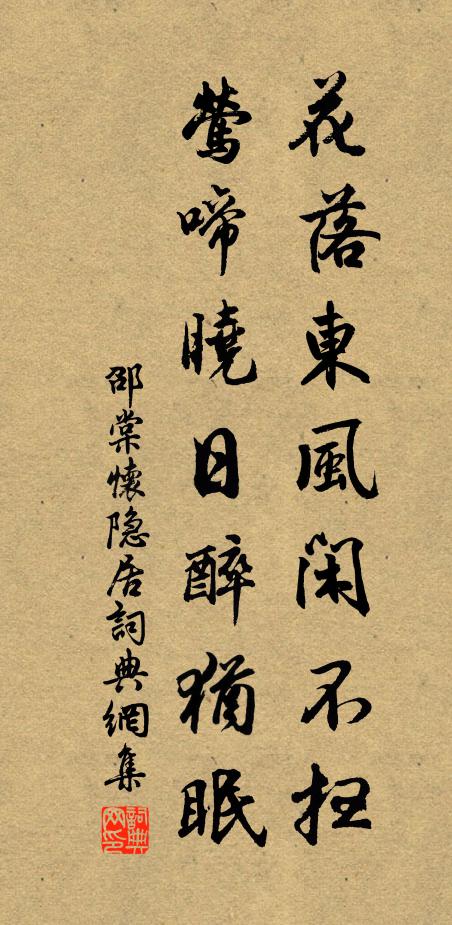 花落東風閑不扫
鶯啼曉日醉猶眠
邵棠懷隐居詞典網集
詞典网印